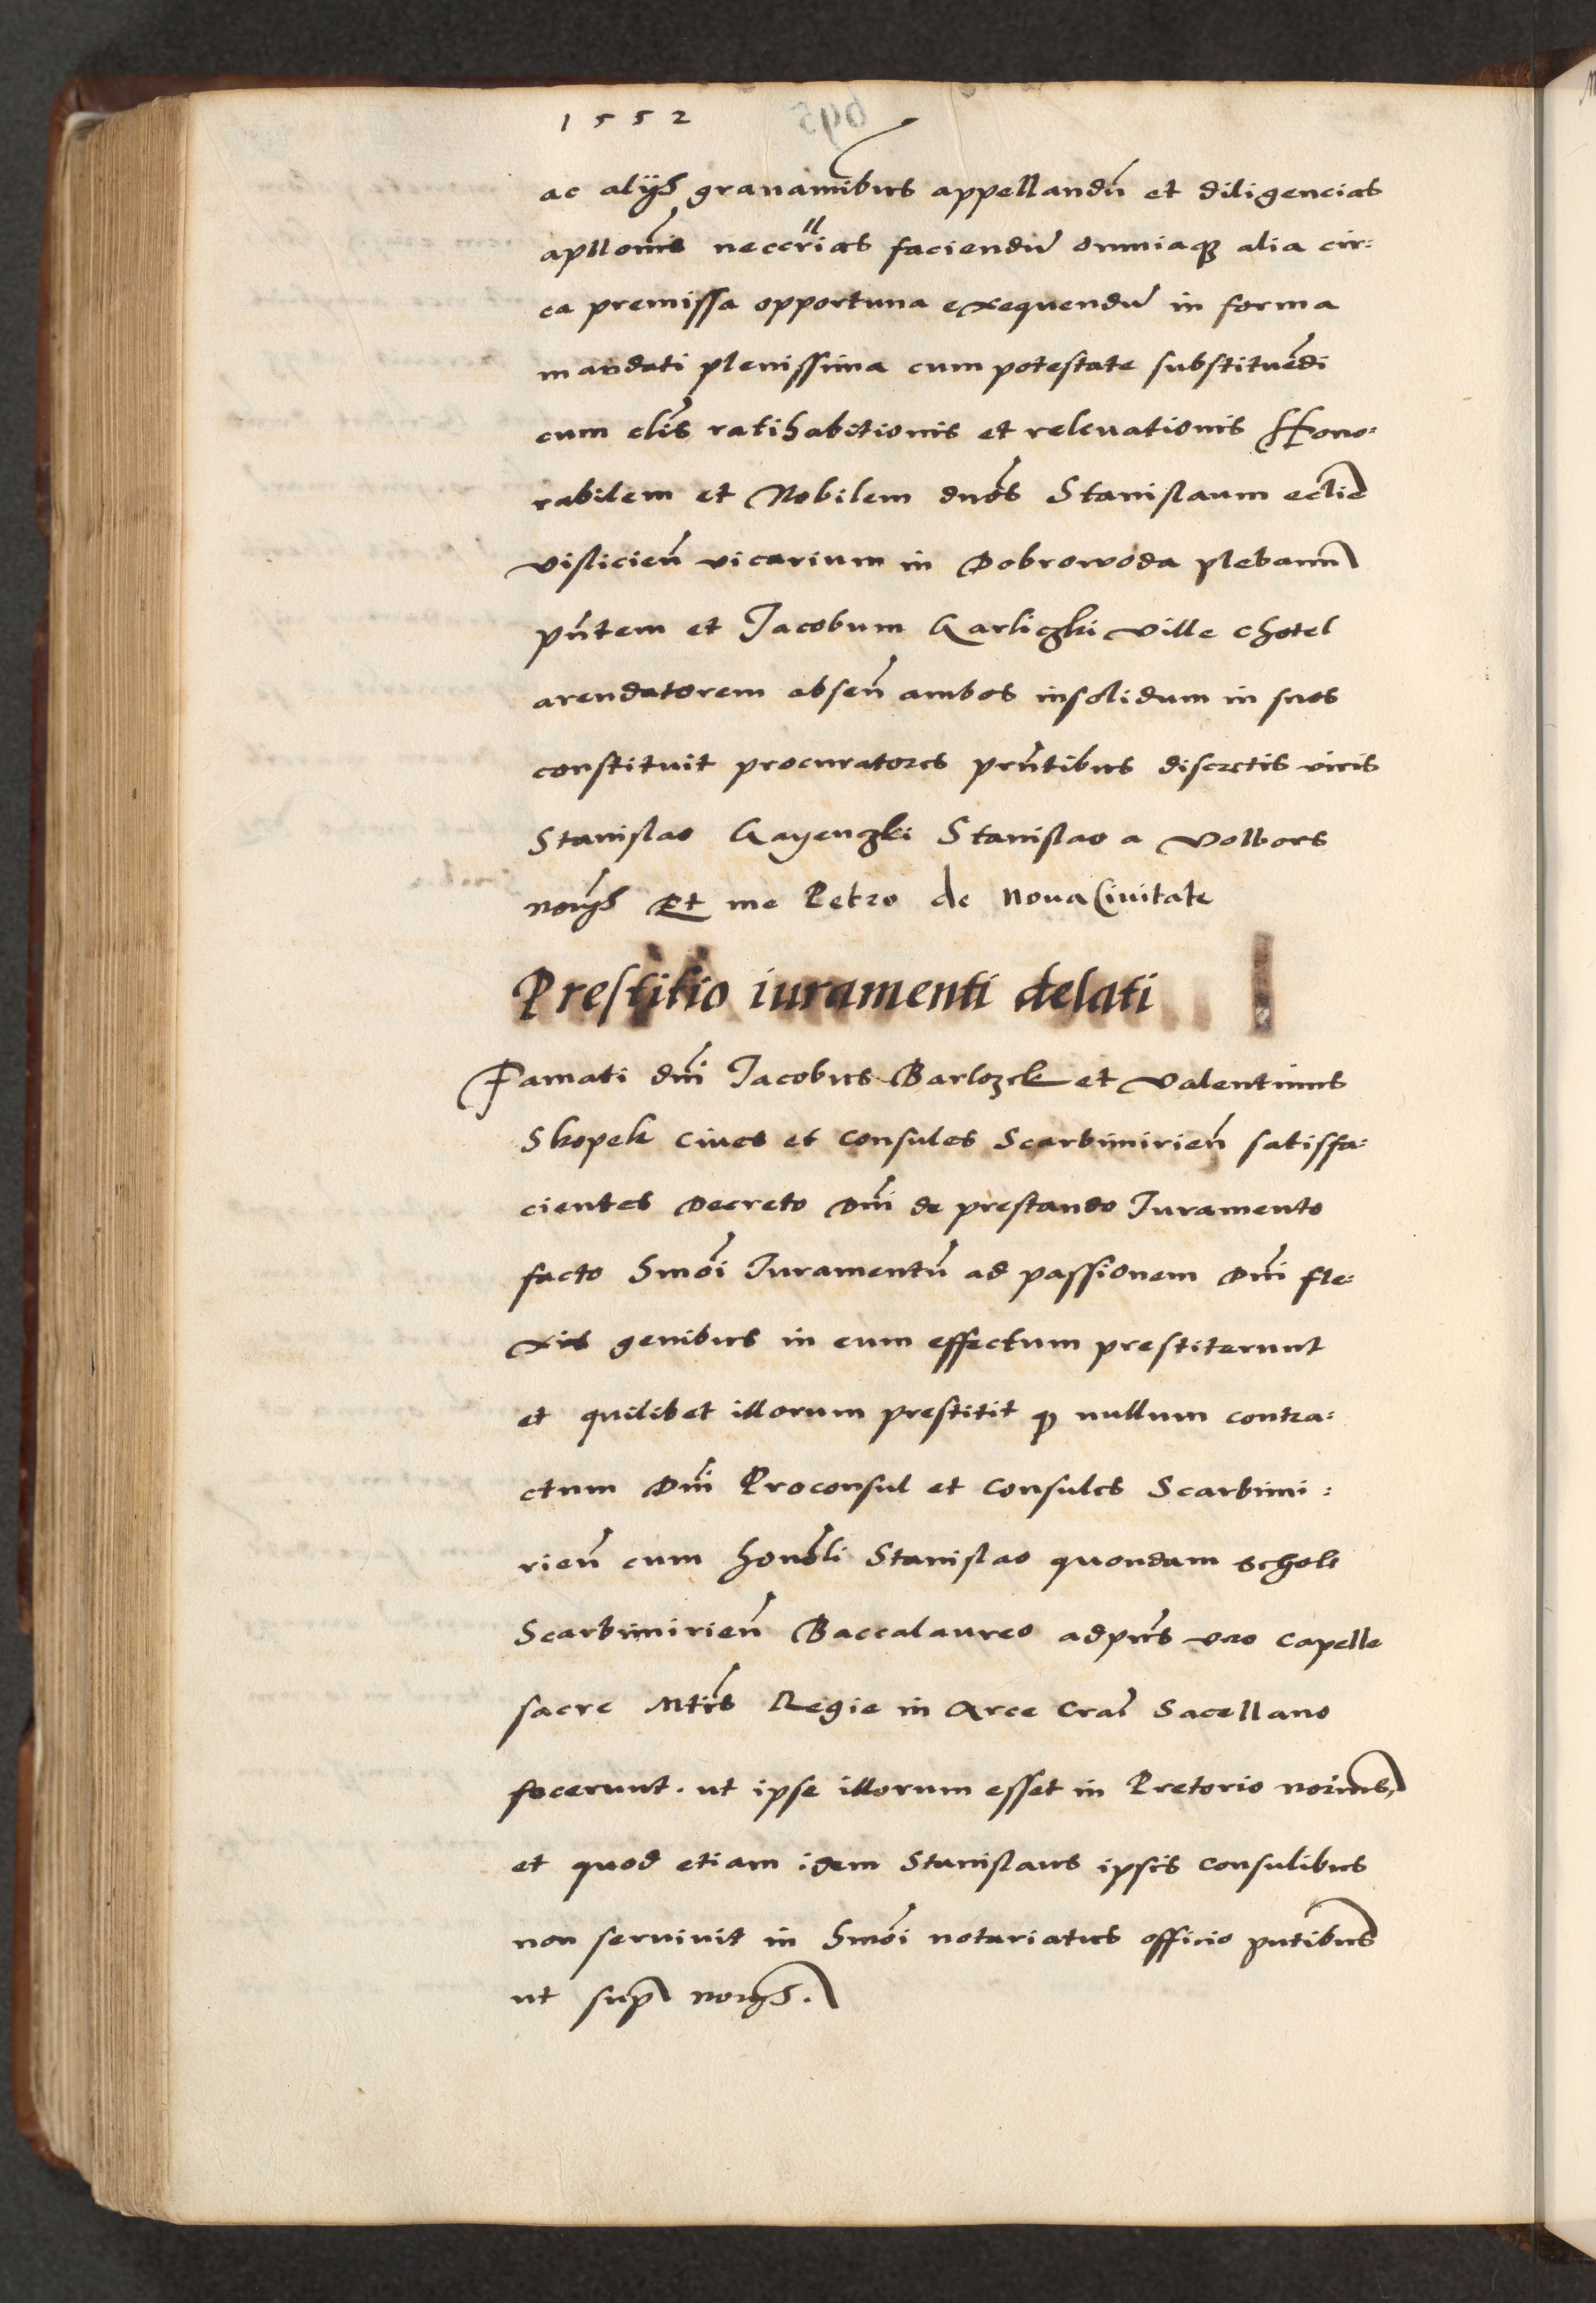 1552
ac alijs grauamībus appellandū et diligencias
apllonis neccrias faciendū omniaqȝ alia cir:
ca premissa opportuna exequendū in forma
mandati plenissima cum potestate substituēdi
cum clis ratihabitionis et releuationis Hono:
rabilem et Nobilem dnos Stanislaum ecclie
visliciēn vicarium in Dobrowoda plebanū
pn̄tem et Jacobum Garliczki ville Chotel
arendatorem absēn ambos insolidum in suos
constituit procuratores prn̄tibus discretis viris
Stanislao Gayenczki Stanislao a Volbors
norijs Et me Petro de Noua Ciuitate
Prestitio iuramenti delati
Famati dn̄i Jacobus Barlozek et Valentinus
Skopek Ciues et Consules Scarbimiriēn satisfa:
cientes Decreto Dn̄i de prestando Juramento
facto Hmōi Juramentū ad passionem Dn̄i fle:
xis genibus in eum effectum prestiterunt
et quilibet illorum prestitit qp nullum contra:
ctum Dn̄i Proconsul et Consules Scarbimi:
riēn cum honobli Stanislao quondam schole
Scarbimiriēn Baccalaureo adpn̄s vro Capelle
sacre Mtis Regie in Arce Cra Sacellano
fecerunt. ut ipse illorum esset in Pretorio norius,
et quod etiam idem Stanislaus ipsis Consulibus
non seruiuit in Hmōi notariatus officio pn̄tibus
ut sup norijs.